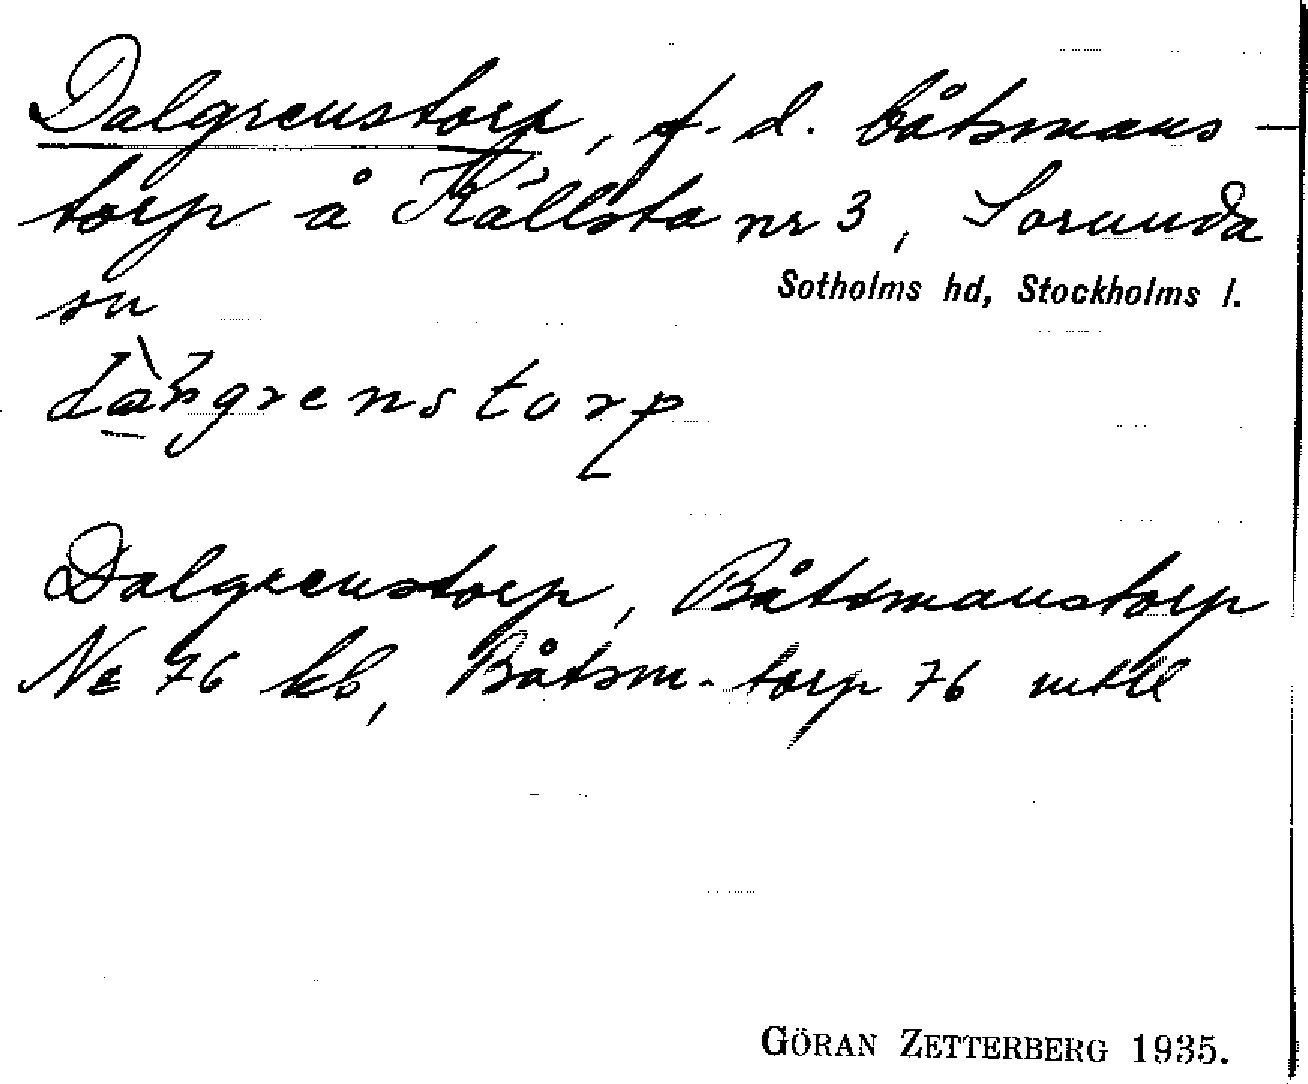 Dalgrenstorp, f. d. båtsmans-
torp å Källsta nr 3, Sorunda
sn
Sotholms hd, Stockholms l.
Dalgrenstorp, Båtsmanstorp
No 76 kb, Båtsm.-torp 76 mtll
GÖRAN ZETTERBERG 1935.